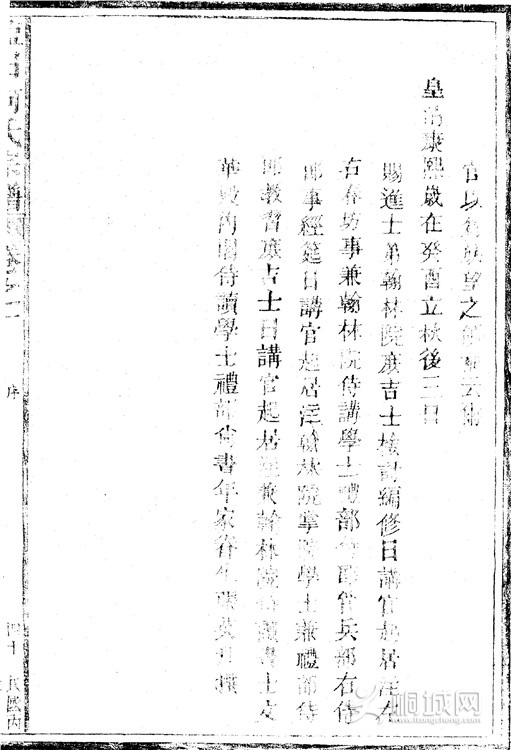 官以為族望之
皇淸康熙歲在癸酉立秋後三日
賜進士第翰林院庶吉士檢討編修日講官起居注左
右春坊事兼翰林院侍講學士禮部侍郎管兵部右侍
郎事經筵日講官起居注翰林院掌院學士兼禮部侍
郎教習庶吉士日講官起居注兼翰林院侍讀學士文
華殿內閣侍讀學士禮部尚書年家眷生張英 撰
何氏宗譜 卷之一
序
四十
桐城网